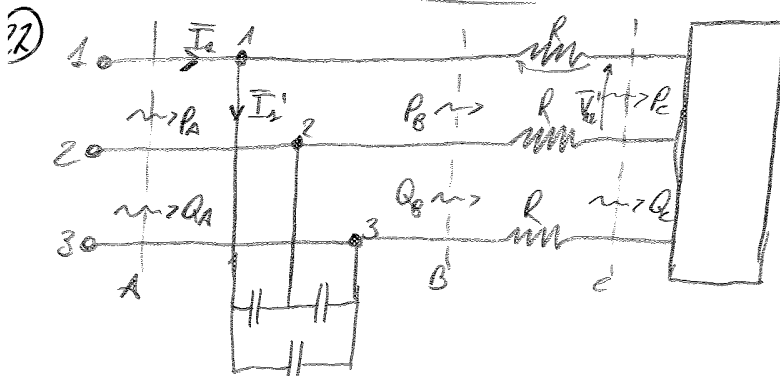 22
1 I̅₁ 1 R
I̅₁' 2 P_A P_B R V̅₁₂' P_C
2
Q_A Q_B R Q_C
3 3
A B C